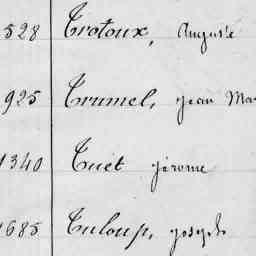 528 Trotoux, Auguste
925 Trumel, jean Mar
1340 Tuet jérome
1685 Tuloup, joseph